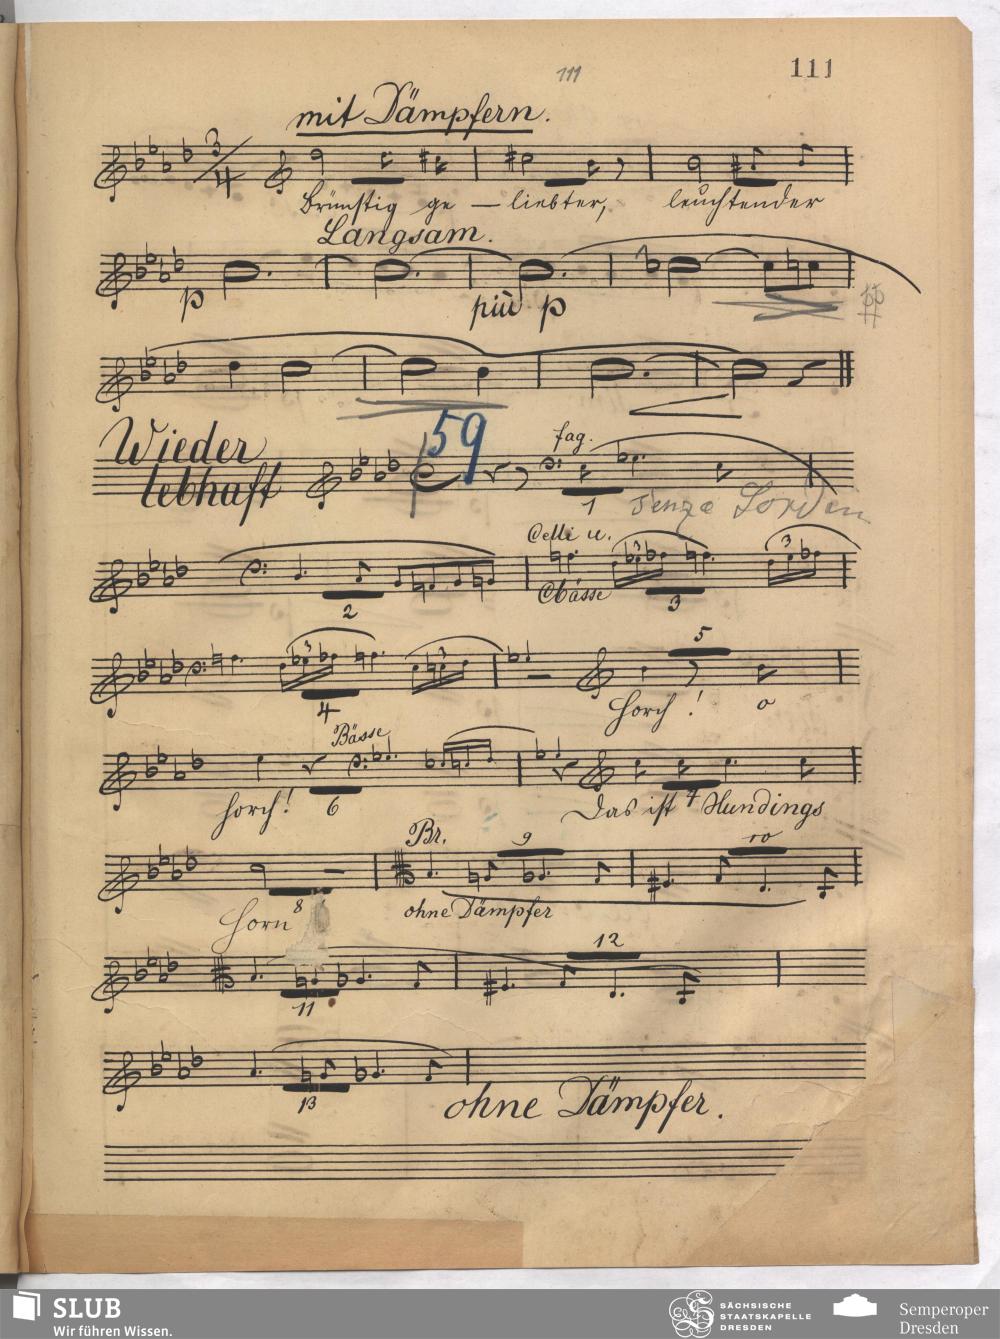 111
111
mit Dämpfern.
3/4
Brünstig ge – liebter, leuchtender
Langsam.
p
più p
pp
Wieder
lebhaft
59
fag.
1
senza Sordin
Celli u.
CBässe
3
3
2
3
3
3
5
4
horch! o
Bässe
horch! 6
Das ist 4 Hundings
Br.
9
10
Horn 8
ohne Dämpfer
12
11
13
ohne Dämpfer.
SLUB
Wir führen Wissen.
SÄCHSISCHE
STAATSKAPELLE
DRESDEN
Semperoper
Dresden